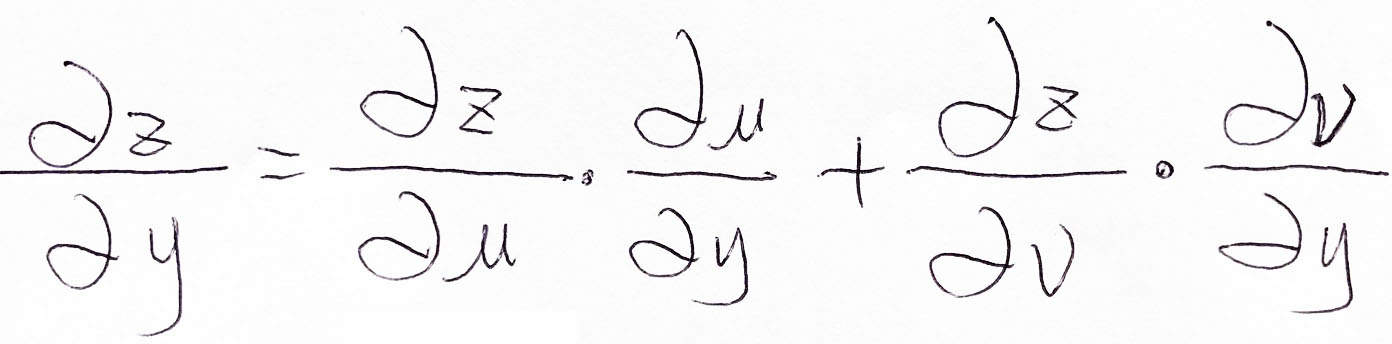 ∂z/∂y = ∂z/∂u · ∂u/∂y + ∂z/∂v · ∂v/∂y